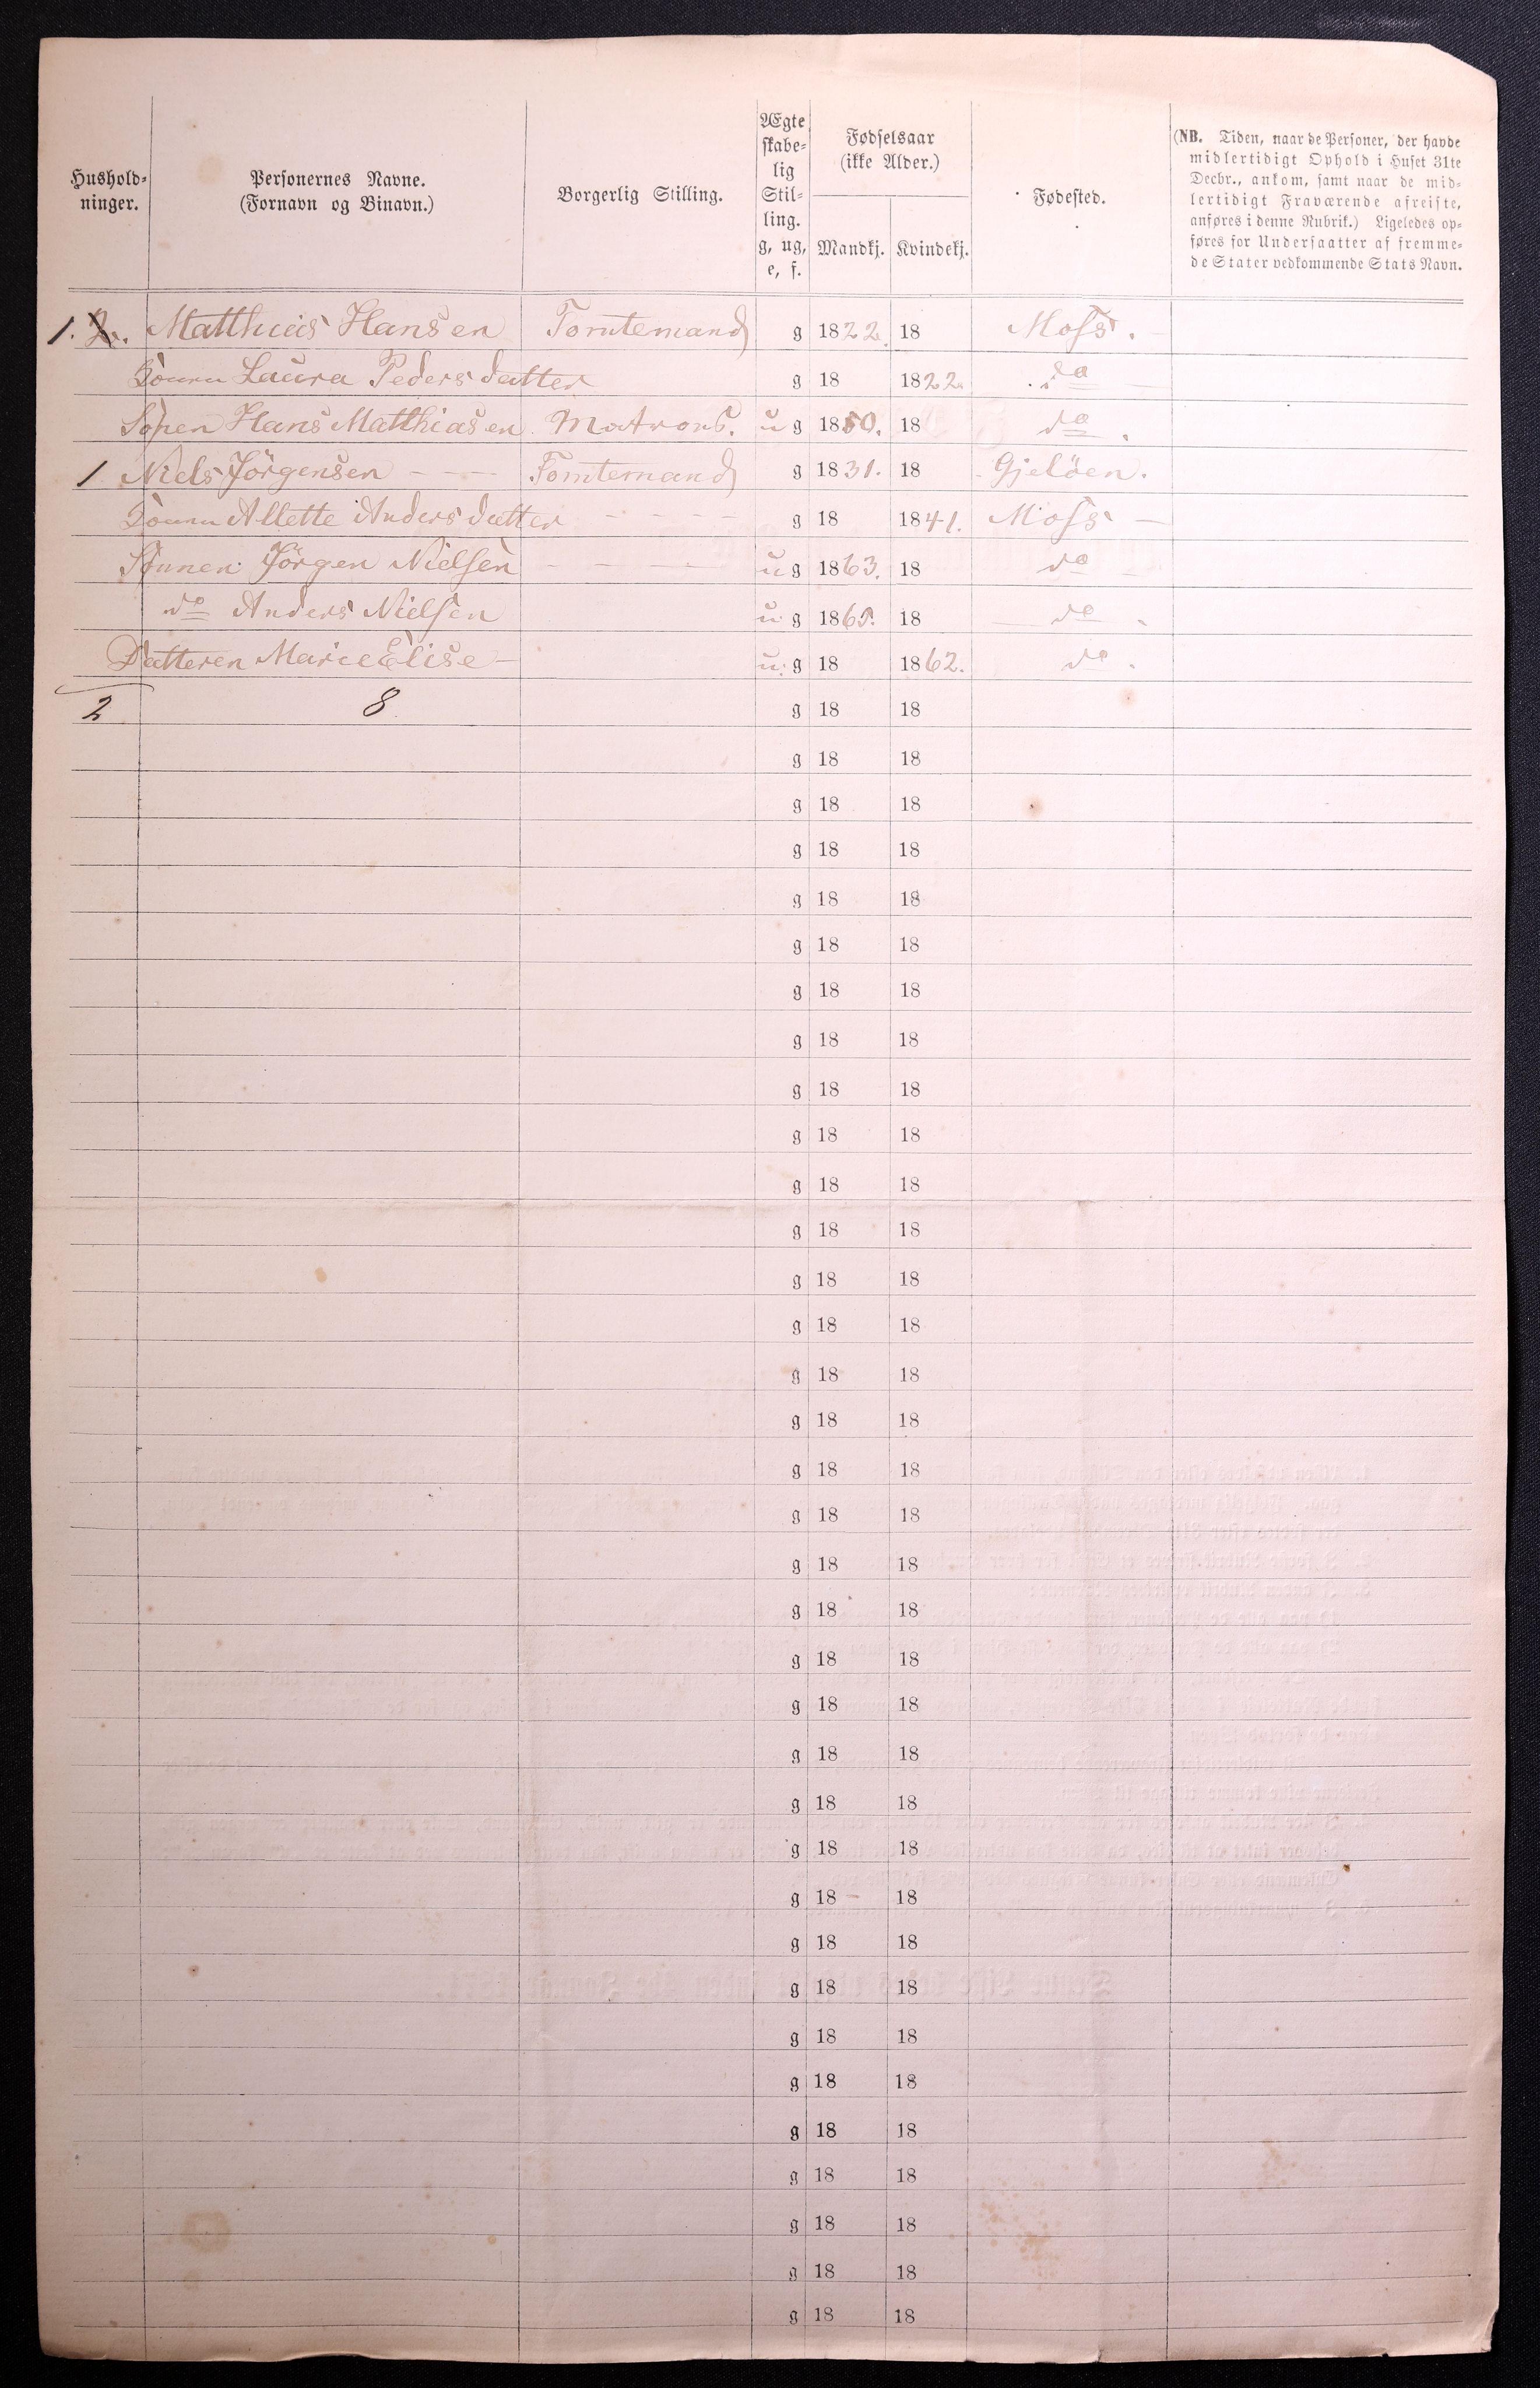 Hushold-
ninger.
Personernes Navne.
(Fornavn og Binavn.)
Borgerlig Stilling.
Ægte
skabe-
lig
Stil-
ling.
g, ug,
e, f.
Fødselsaar
(ikke Alder.)
Mandkj. Kvindekj.
Fødested.
(NB. Tiden, naar de Personer, der havde
midlertidigt Ophold i Huset 31te
Decbr., ankom, samt naar de mid-
lertidigt Fraværende afreiste,
anføres i denne Rubrik.) Ligeledes op-
føres for Undersaatter af fremme-
de Stater vedkommende Stats Navn.
1. 2. Matthias Hansen Tomtemand g 1822. 18 Moss.
Konen Laura Pedersdatter g 18 1822. do
Sønen Hans Matthiasen Matrons. u g 1850. 18 do
1 Niels Jörgensen Tomtemand g 1831. 18 Gjelöen.
Konen Allette Andersdatter g 18 1841. Moss
Sönnen Jörgen Nielsen u g 1863. 18 do
do Anders Nielsen u g 1865. 18 do
Datteren Marie Elise u g 18 1862. do
2 8 g 18 18
g 18 18
g 18 18
g 18 18
g 18 18
g 18 18
g 18 18
g 18 18
g 18 18
g 18 18
g 18 18
g 18 18
g 18 18
g 18 18
g 18 18
g 18 18
g 18 18
g 18 18
g 18 18
g 18 18
g 18 18
g 18 18
g 18 18
g 18 18
g 18 18
g 18 18
g 18 18
g 18 18
g 18 18
g 18 18
g 18 18
g 18 18
g 18 18
g 18 18
g 18 18